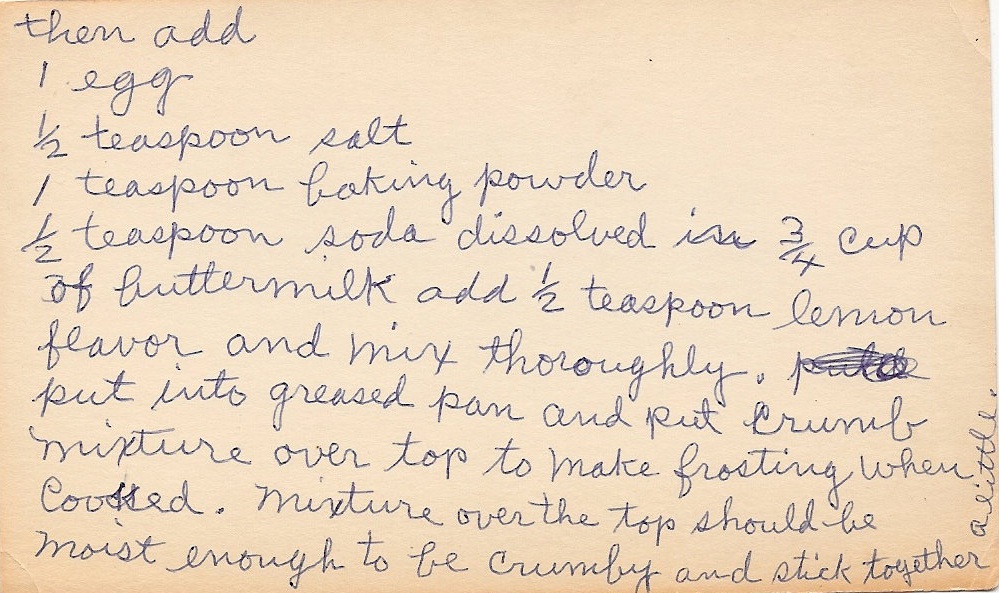 then add
1 egg
1/2 teaspoon salt
1 teaspoon baking powder
1/2 teaspoon soda dissolved in 3/4 cup
of buttermilk add 1/2 teaspoon lemon
flavor and mix thoroughly.
put into greased pan and put crumb
mixture over top to make frosting when
cooked. Mixture over the top should be
moist enough to be crumby and stick together
a little.